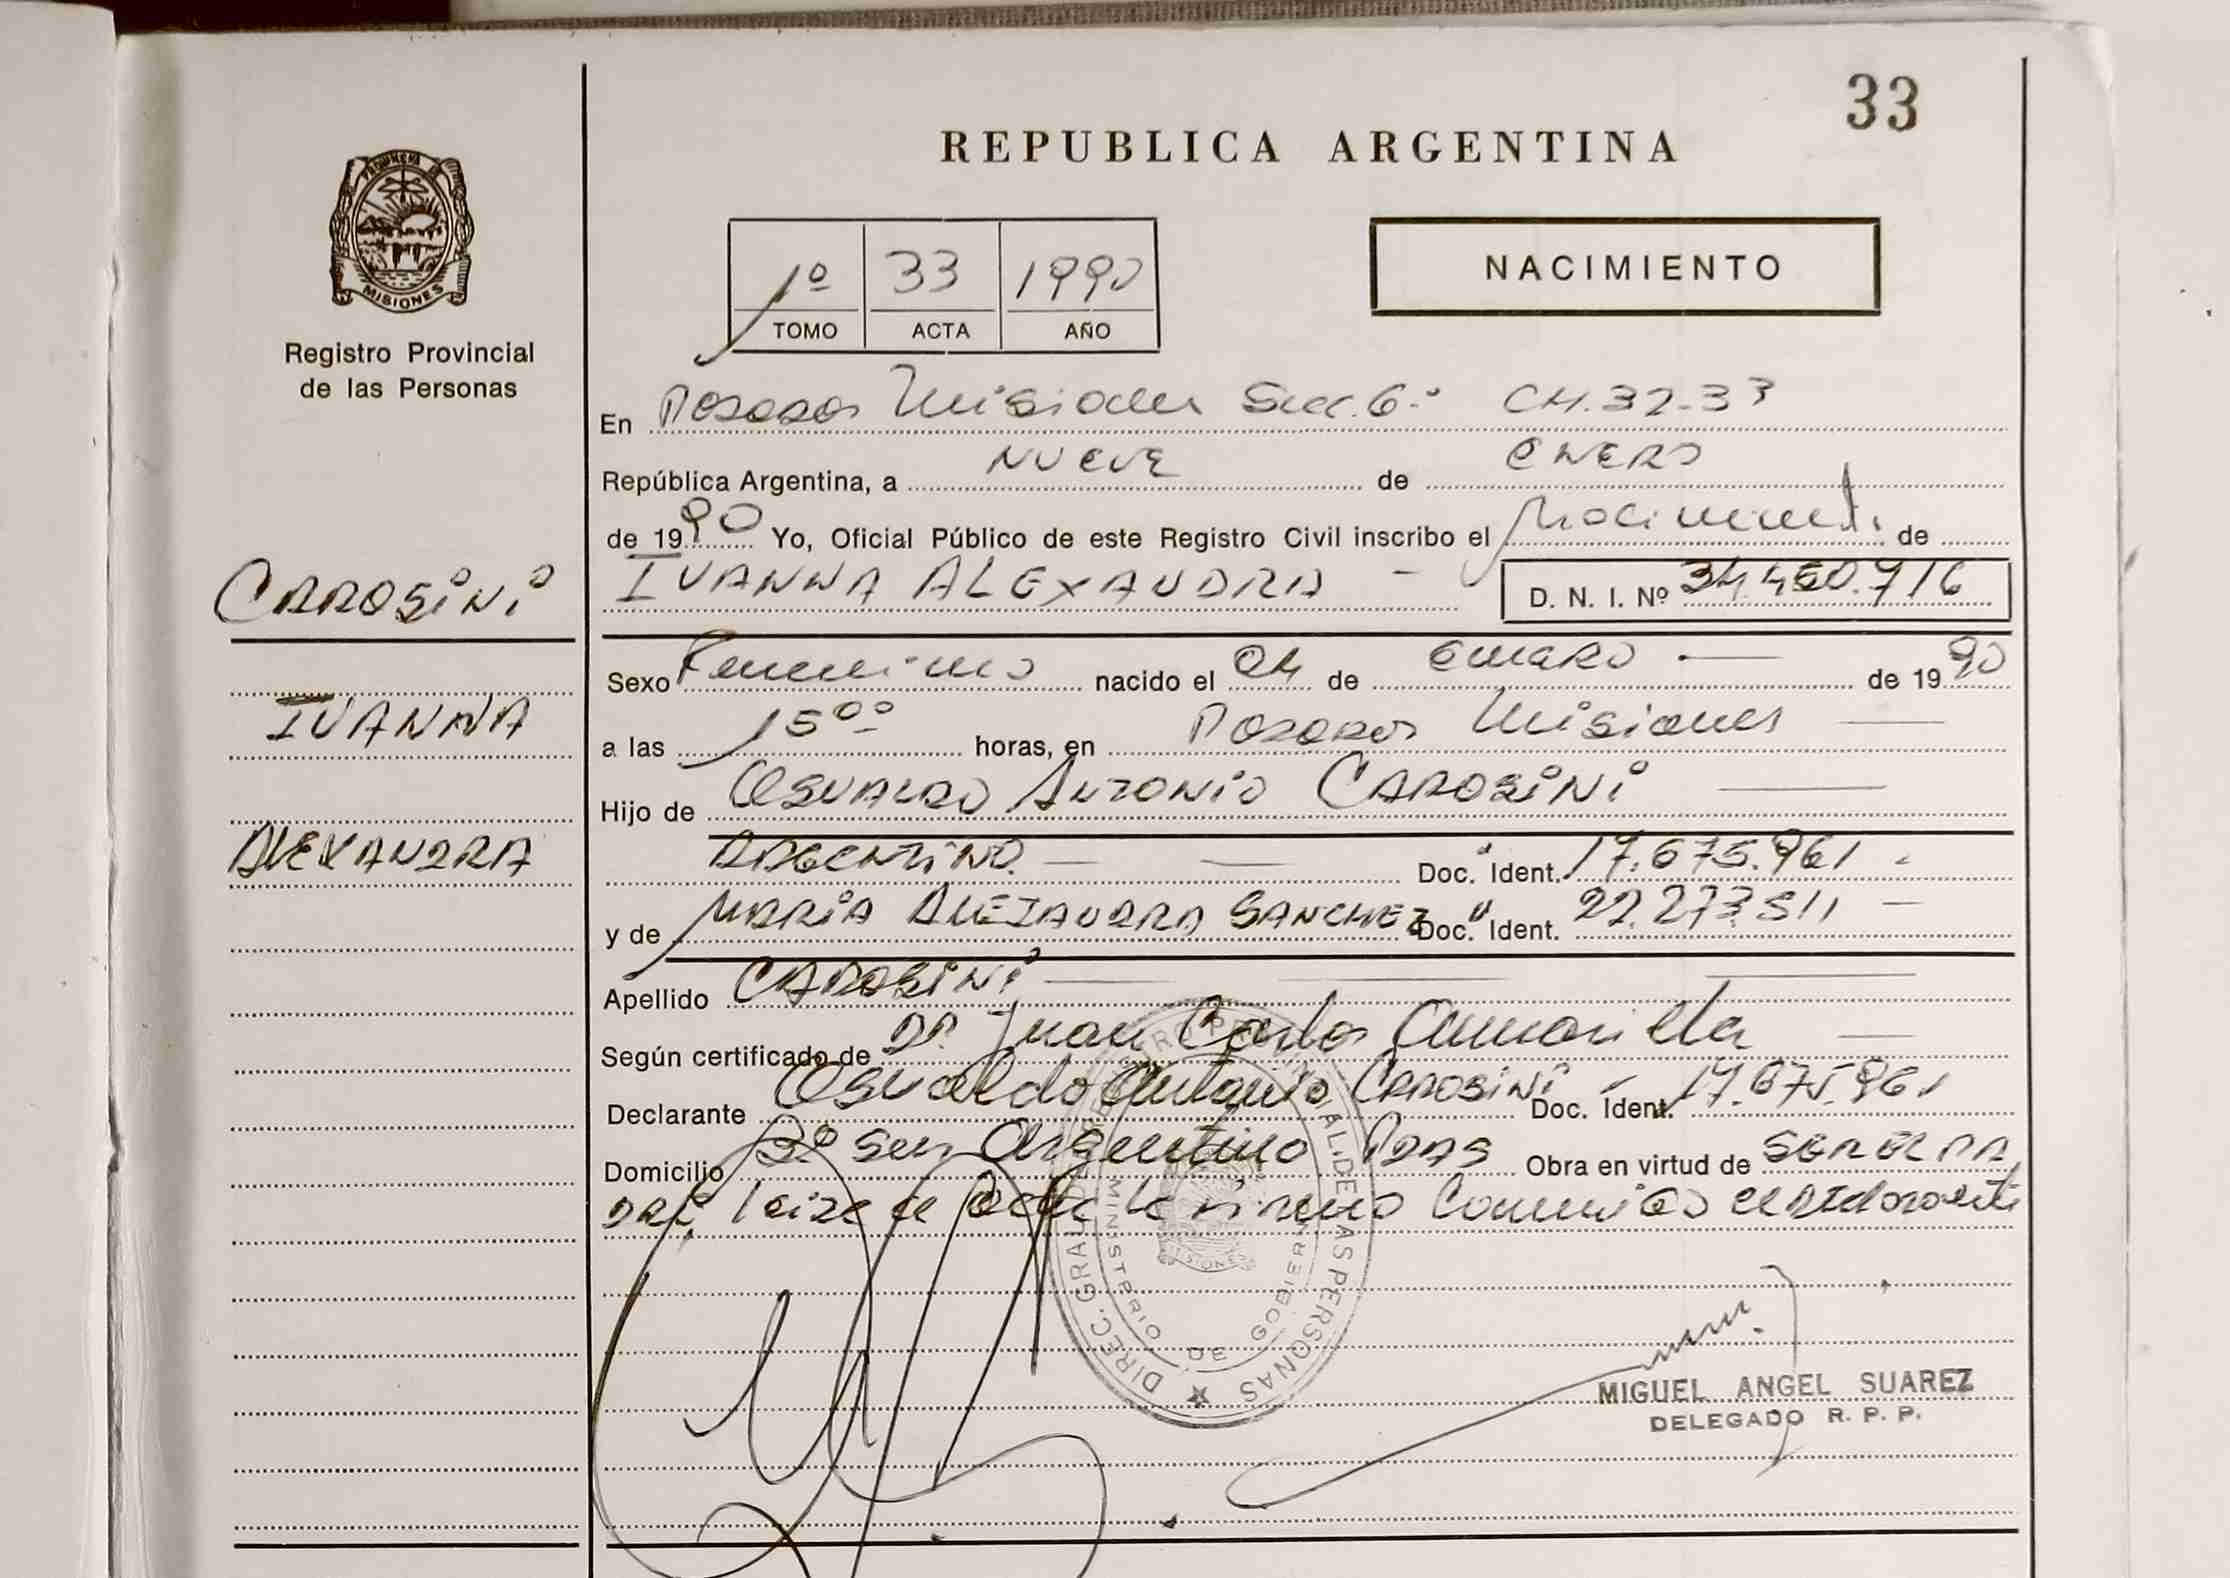 33
REPUBLICA ARGENTINA
PROVINCIA DE
MISIONES
Registro Provincial
de las Personas
1º 33 1990
TOMO ACTA AÑO
NACIMIENTO
En Posadas Misiones Secc. 6.a CH. 32-33
República Argentina, a NUEVE de ENERO
de 1990 Yo, Oficial Público de este Registro Civil inscribo el Nacimiento de
IVANNA ALEXANDRA - D. N. I. Nº 34.450.716
CAROSINI
IVANNA
ALEXANDRA
Sexo Femenino nacido el 04 de ENERO — de 1990
a las 15ºº horas, en Posadas Misiones —
Hijo de OSVALDO ANTONIO CAROSINI —
ARGENTINO — — Doc. Ident. 17.675.961 -
y de MARIA ALEJANDRA SANCHEZ Doc. Ident. 22.273.511 —
Apellido CAROSINI — — —
Según certificado de Dr. Juan Carlos Amarilla —
Declarante Osvaldo Antonio CAROSINI - Doc. Ident. 17.675.961
Domicilio Bº Argentino Pdas Obra en virtud de SER EL PA
DRE el
DIREC. GRAL. DEL REGISTRO PROVINCIAL DE LAS PERSONAS
MINISTERIO DE GOBIERNO
MISIONES
MIGUEL ANGEL SUAREZ
DELEGADO R. P. P.